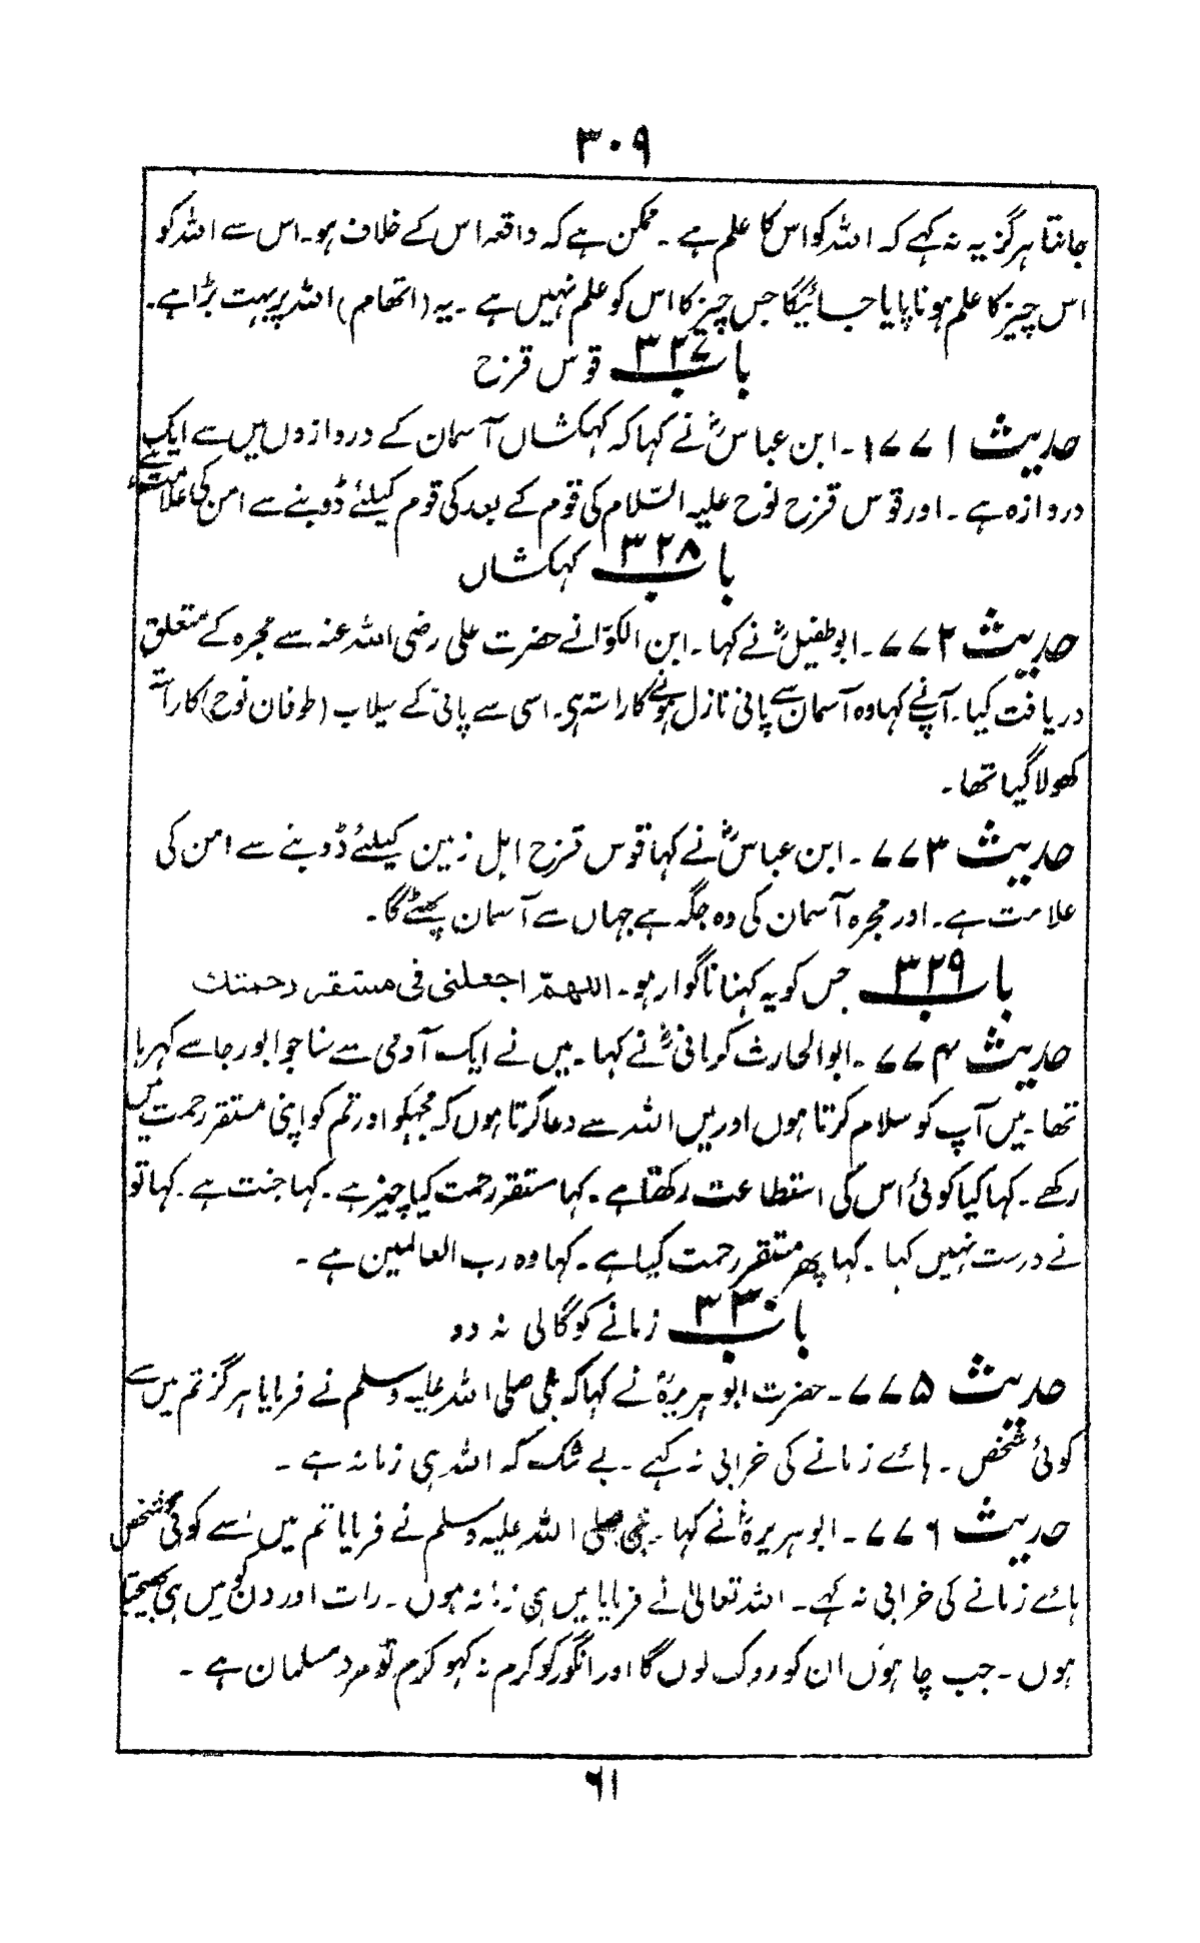 ۳۰۹
جانتا ہرگز یہ نہ کہے کہ اللہ کو اس کا علم ہے ۔ ممکن ہے کہ واقعہ اس کے خلاف ہو۔ اس سے اللہ کو
اس چیز کا علم ہونا پایا جائیگا جس چیز کا اس کو علم نہیں ہے ۔ یہ (اتھام) اللہ پر بہت بڑا ہے۔
باب ۳۲۷ قوس قزح
حدیث ۷۷۱۔ ابن عباسؓ نے کہا کہ کہکشاں آسمان کے دروازوں میں سے ایک
دروازہ ہے ۔ اور قوس قزح نوح علیہ السّلام کی قوم کے بعد کی قوم کیلئے ڈوبنے سے امن کی علامت ہے
باب ۳۲۸ کہکشاں
حدیث ۷۷۲ ۔ ابو طفیلؓ نے کہا ۔ ابن الکوّا نے حضرت علی رضی اللہ عنہ سے مجرہ کے متعلق
دریافت کیا ۔ آپنے کہا وہ آسمان سے پانی نازل ہونے کا راستہ ہی۔ اسی سے پانی کے سیلاب (طوفان نوح) کا راستہ
کھولا گیا تھا ۔
حدیث ۷۷۳ ۔ ابن عباسؓ نے کہا قوس قزح اہل زمین کیلئے ڈوبنے سے امن کی
علامت ہے ۔ اور مجرہ آسمان کی وہ جگہ ہے جہاں سے آسمان پھٹے گا ۔
باب ۳۲۹ جس کو یہ کہنا ناگوار ہو ۔ اللہمّ اجعلنی فی مستقر رحمتك
حدیث ۷۷۴ ۔ ابو الحارث کرمانیؓ نے کہا ۔ میں نے ایک آدمی سے سنا جو ابو رجا سے کہہ رہا
تھا ۔ میں آپ کو سلام کرتا ہوں اور میں اللہ سے دعا کرتا ہوں کہ مجہکو اور تم کو اپنی مستقر رحمت میں
رکھے ۔ کہا کیا کوئی اس کی استطاعت رکھتا ہے ۔ کہا مستقر رحمت کیا چیز ہے ۔ کہا جنت ہے ۔ کہا تو
نے درست نہیں کہا ۔ کہا پھر مستقر رحمت کیا ہے ۔ کہا وہ رب العالمین ہے ۔
باب ۳۳۰ زمانے کو گالی نہ دو
حدیث ۷۷۵ ۔ حضرت ابو ہریرہؓ نے کہا کہ نبی صلی اللہ علیہ وسلم نے فرمایا ہرگز تم میں سے
کوئی شخص ۔ ہائے زمانے کی خرابی نہ کہے ۔ بے شک کہ اللہ ہی زمانہ ہے ۔
حدیث ۷۷۶ ۔ ابو ہریرہؓ نے کہا ۔ نبی صلی اللہ علیہ وسلم نے فرمایا تم میں سے کوئی شخص
ہائے زمانے کی خرابی نہ کہے ۔ اللہ تعالیٰ نے فرمایا میں ہی زمانہ ہوں ۔ رات اور دن کو میں ہی بھیجتا
ہوں ۔ جب چاہوں ان کو روک لوں گا اور انگور کو کرم نہ کہو کرم تو مرد مسلمان ہے ۔
۶۱